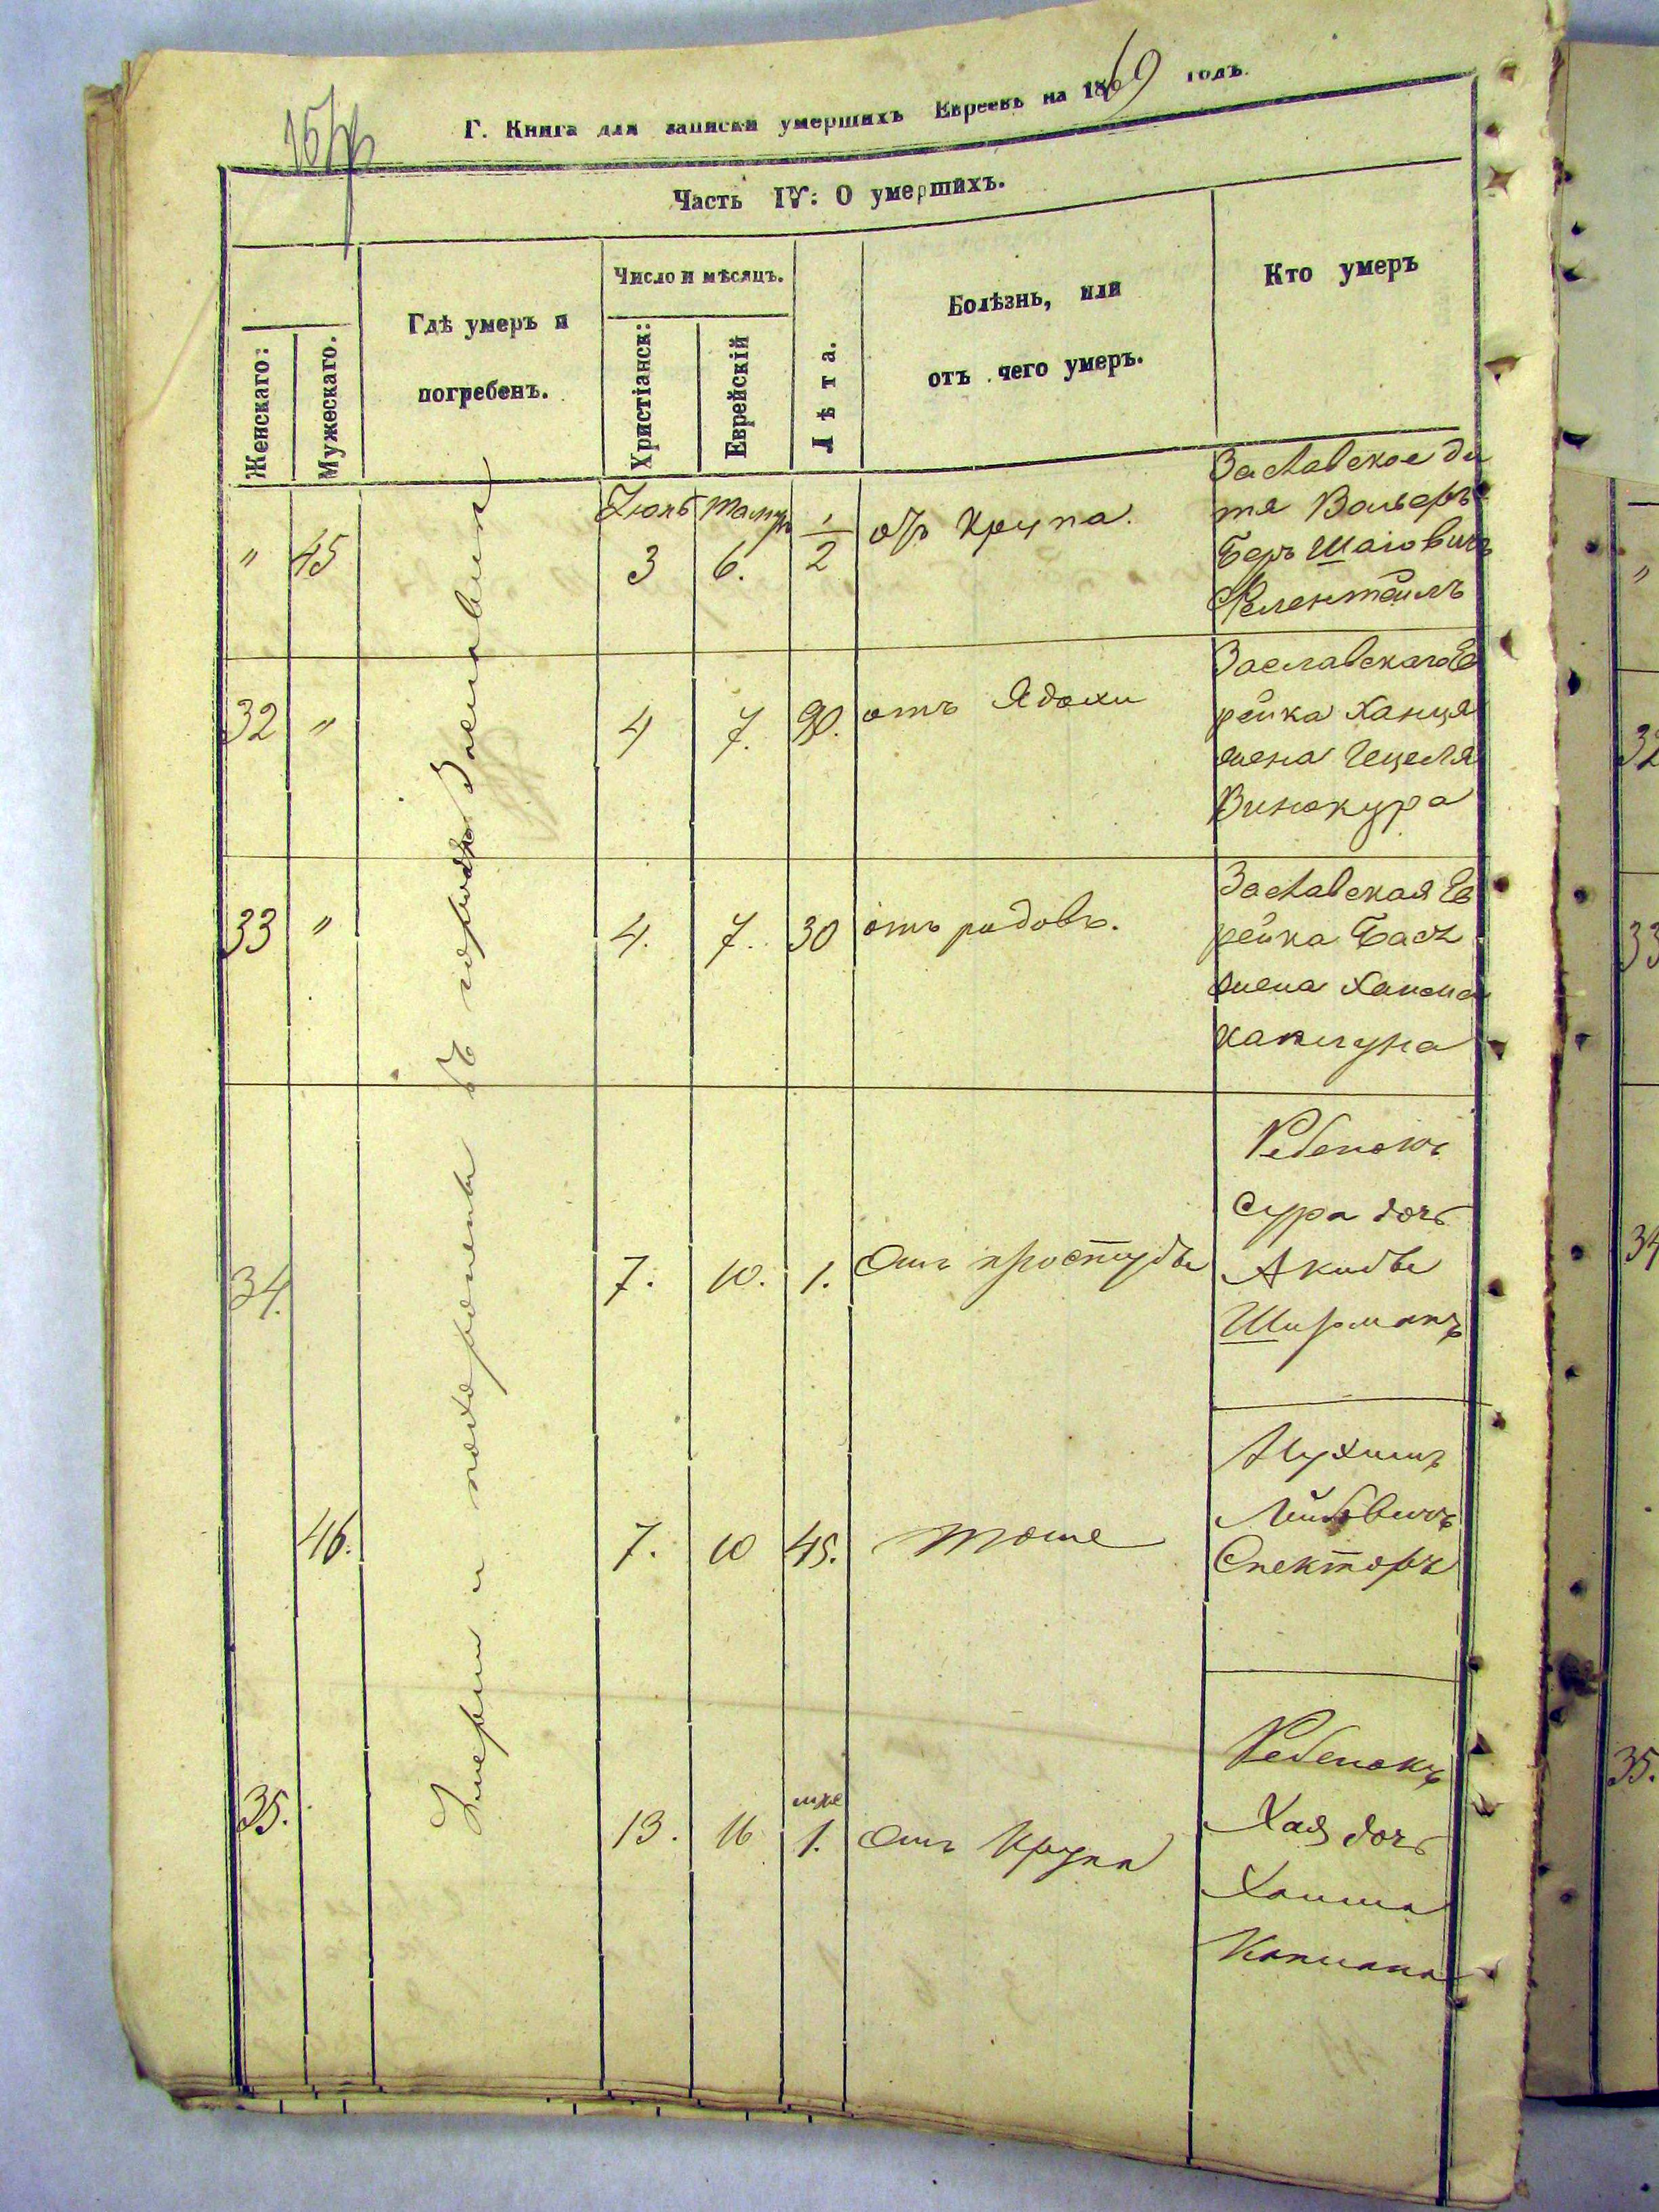 Г. Книга для записки умершихъ Евреевъ на 1869 годъ.
Часть IV: О умершихъ.
Женскаго:
Мужескаго.
Гдѣ умеръ и
погребенъ.
Число и мѣсяцъ.
Христіанск:
Еврейскій
Лѣта.
Болѣзнь, или
отъ чего умеръ.
Кто умеръ
Умерли и похоронены въ городѣ Заславлѣ
" 45
Іюнь 3
6.
1/2
отъ крупа.
Заславское ди
тя Вольфъ
Беръ Шаговичъ
32 "
4
7.
90.
отъ
Заславская Ев
рейка Ханця
жена Гецеля
Винокура
33 "
4.
7.
30
отъ родовъ.
Заславская Ев
рейка Бася
жена Хаима
34.
7.
10.
1.
Отъ простуды
Ребенокъ
Сура дочь
Акивы
46.
7.
10
45.
тоже
Нухимъ
Лейбовичъ
Спекторъ
35.
13.
16
1.
Отъ Крупа
Ребенокъ
Хая дочь
Хаима